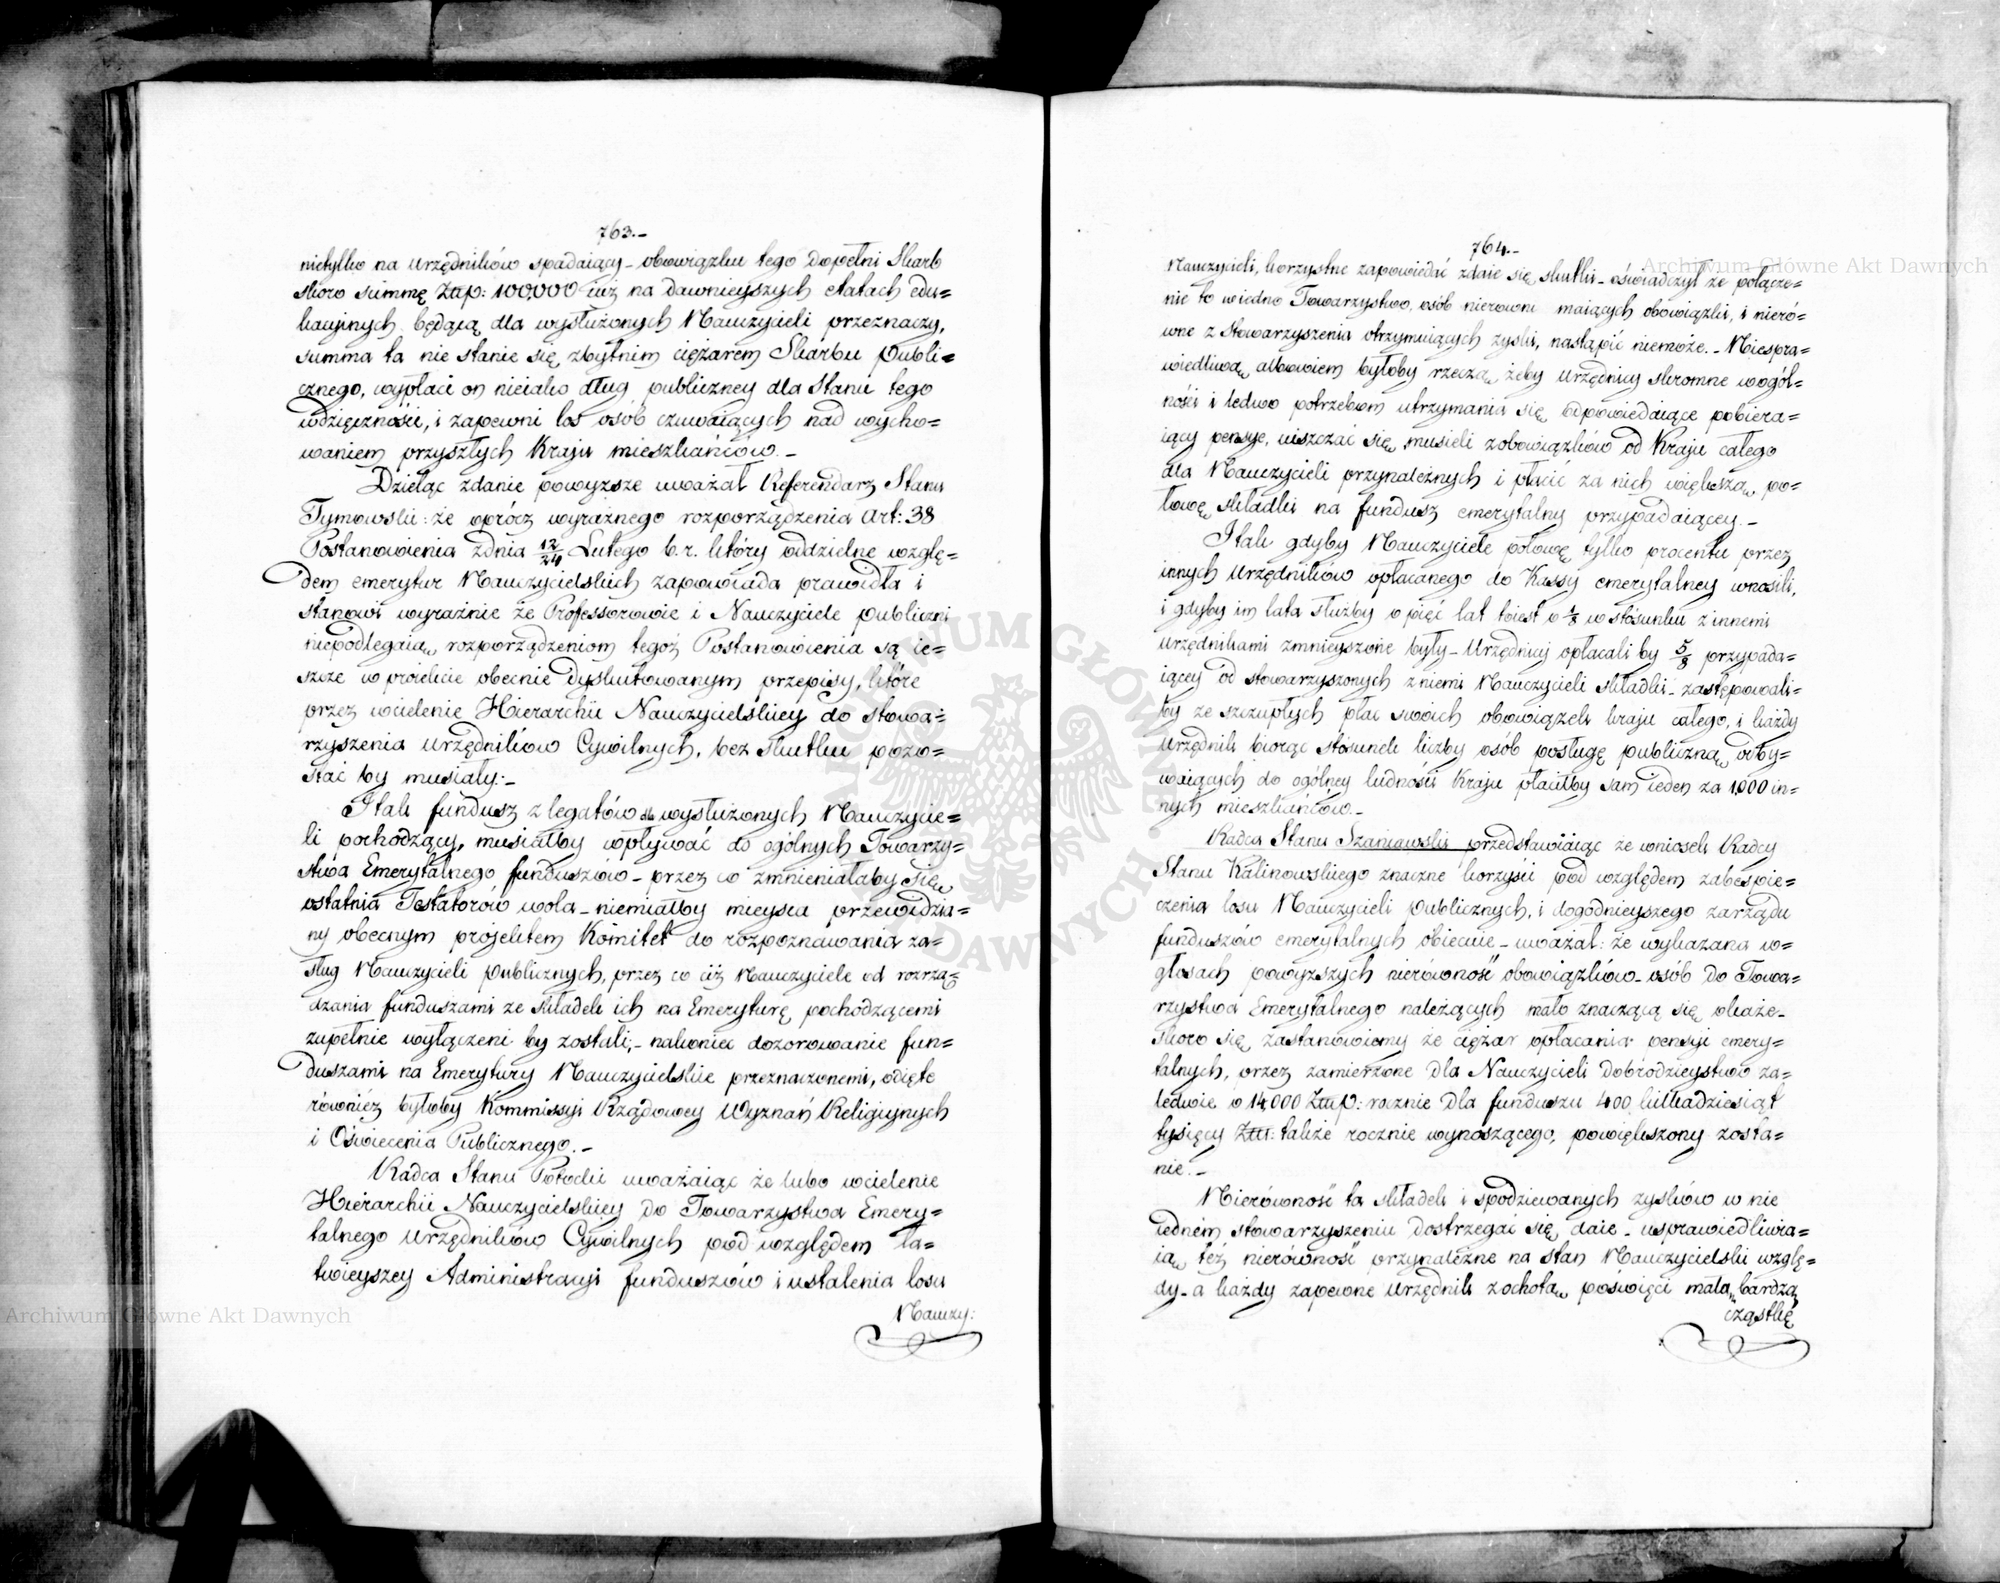 763.-
nietylko na urzędników spadaiący_ obowiązku tego dopełni Skarb
skoro summę Złłp: 100,000 iuż na dawnieyszych etatach edu=
kacyinych będącą dla wysłużonych Nauczycieli przeznaczy,
summa ta nie stanie się zbytnim ciężarem Skarbu publi=
cznego, wypłaci on nieiako dług publiczney dla Stanu tego
wdzięczności, i zapewni los osób czuwaiących nad wycho=
waniem przyszłych Kraiu mieszkańców._
Dzieląc zdanie powyższe uważał Referendarz Stanu
Tymowski: że oprócz wyraźnego rozporządzenia Art: 38
Postanowienia zdnia 12/24 Lutego b.r. który oddzielne wzglę=
dem emerytur Nauczycielskich zapowiada prawidła i
stanowi wyraźnie że Professorowie i Nauczyciele publiczni
niepodlegaią rozporządzeniom tegoż Postanowienia są ie=
szcze w proiekcie obecnie dyskutowanym przepisy, które
przez wcielenie Hierarchii Nauczycielskiey do stowa=
rzyszenia urzędników Cywilnych, bez skutku pozo=
stać by musiały:_
I tak fundusz z legatów dla wysłużonych Nauczycie=
li pochodzący, musiałby wpływać do ogólnych Towarzy=
stwa Emerytalnego funduszów_ przez co zmnieniałaby się
ostatnia Testatorów wola_ niemiałby mieysca przewidzia=
ny obecnym projektem Komitet do rozpoznawania za=
sług Nauczycieli publicznych, przez co ciż Nauczyciele od rozrzą=
dzania funduszami ze składek ich na Emeryturę pochodzącemi
zupełnie wyłączeni by zostali,- nakoniec dozorowanie fun=
duszami na Emerytury Nauczycielskie przeznaczonemi, odięte
również byłoby Kommissyi Rządowey Wyznań Religiynych
i Oświecenia Publicznego._
Radca Stanu Potocki uważaiąc że lubo wcielenie
Hierarchii Nauczycielskiey do Towarzystwa Emery=
talnego Urzędników Cywilnych pod względem ła=
twieyszey Administracyi funduszów i ustalenia losu
Nauczy:
764.-
Nauczycieli, korzystne zapowiedać zdaie się skutki_ oświadczył że połącze=
nie to wiedno Towarzystwo, osób nierowne maiących obowiązki, i nieró=
wne z stowarzyszenia otrzymuiących zyski, nastąpić niemoże._ Niespra=
wiedliwą albowiem byłoby rzeczą, żeby urzędnicy skromne wogól=
ności i ledwo potrzebom utrzymania się odpowiedaiące pobiera=
iący pensye, uiszczać się musieli zobowiązków od Kraiu całego
dla Nauczycieli przynależnych i płacić za nich większą po=
łowę składki na fundusz emerytalny przypadaiącey._
I tak gdyby Nauczyciele połowę tylko procentu przez
innych Urzędników opłacanego do Kassy emerytalney wnosili,
i gdyby im lata służby o pięć lat toiest o 1/8 w stósunku z innemi
urzędnikami zmnieyszone były_ Urzędnicy opłacali by 5/8 przypada=
iącey od stowarzyszonych z niemi Nauczycieli składki_ zastępowali=
by ze szczupłych płac swoich obowiązek kraiu całego, i każdy
Urzędnik biorąc stósunek liczby osób posługę publiczną odby=
waiących do ogólney ludności Kraiu płaciłby sam ieden za 1,000 in=
nych mieszkańców._
Radca Stanu Szaniawski przedstawiaiąc że wniosek Radcy
Stanu Kalinowskiego znaczne korzyści pod względem zabespie=
czenia losu Nauczycieli publicznych, i dogodnieyszego zarządu
funduszów emerytalnych obiecuie_ uważał: że wykazana w=
głosach powyższych nierówność obowiązków osób do Towa=
rzystwa Emerytalnego należących mało znaczącą się okaże_
skoro się zastanowiemy że ciężar opłacania pensyi emery=
talnych, przez zamierzone dla Nauczycieli dobrodzieystwo za=
ledwie o 14,000 Złłp: rocznie dla funduszu 400 kilkadziesiąt
tysięcy Złłt: także rocznie wynoszącego, powiększony zosta=
nie._
Nierówność ta składek i spodziewanych zysków w nie
iedném stowarzyszeniu dostrzegać się daie_ usprawiedliwia=
ią też nierówność przynależne na stan Nauczycielski wzglę=
dy_ a każdy zapewne urzędnik z ochotą poświęci małą bardzą
cząstkę
Archiwum Główne Akt Dawnych
Archiwum Główne Akt Dawnych
ARCHIWUM GŁÓWNE AKT DAWNYCH